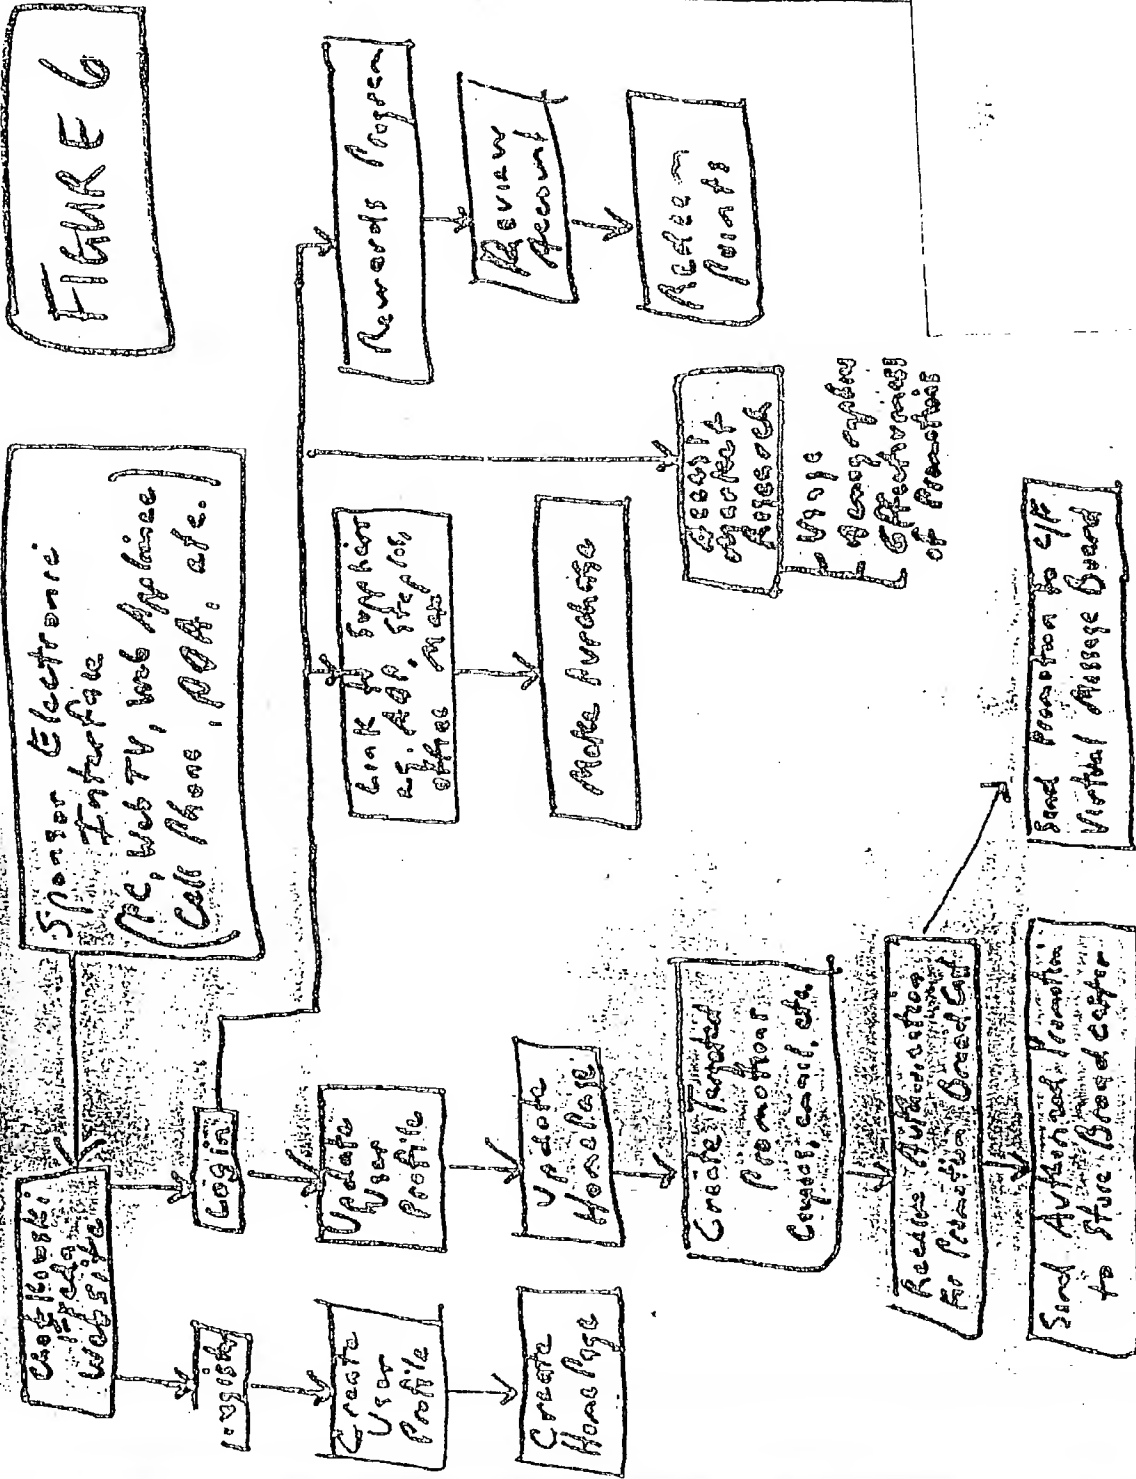 FIGURE 6
Sponsor Electronic
Interface
(PC, Web TV, Web Appliance
Cell Phone, PDA, etc.)
Website
Login
Register
Create
User
Profile
Create
Home Page
Update
User
Profile
Update
Home Page
Create Targeted
Promotions
email, etc.
Receive Authorization
For Promotion Broadcast
Send Authorized Promotion
to Store Broadcaster
Send Promotion to
Virtual Message Board
Link to Suppliers
eg. ADP, Staples,
Office Max
Make Purchase
Access
Market
Research
Usage
Demographics
Effectiveness
of Promotions
Rewards Program
Review
Account
Redeem
Points